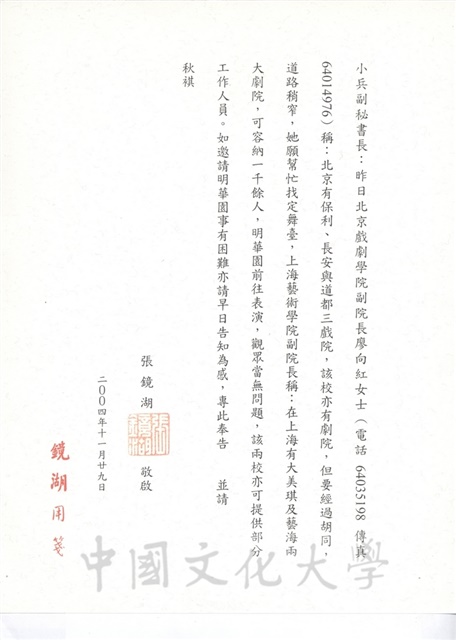 小兵副秘書長：昨日北京戲劇學院副院長廖向紅女士（電話 64035198 傳真
64014976）稱：北京有保利、長安與道都三戲院，該校亦有劇院，但要經過胡同，
道路稍窄，她願幫忙找定舞臺，上海藝術學院副院長稱：在上海有大美琪及藝海兩
大劇院，可容納一千餘人，明華園前往表演，觀眾當無問題，該兩校亦可提供部分
工作人員。如邀請明華園事有困難亦請早日告知為感，專此奉告 並請
秋祺
張鏡湖 敬啟
二00四年十一月廿九日
鏡湖用箋
中國文化大學